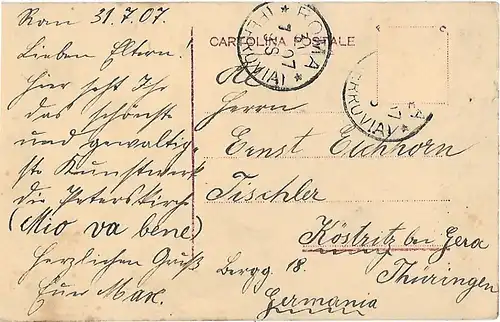 Rom 31.7.07.
Lieben Eltern!
hier seht Ihr
das schönste
und gewaltig-
ste Kunstwerk
die Peterskirche
(Mio va bene)
herzlichen Gruß
Euer Max.
CARTOLINA POSTALE
ROMA
FERROVIA
Herrn
Ernst Eichhorn
Tischler
Köstritz bei Gera
Bergg 18. Thüringen
Germania